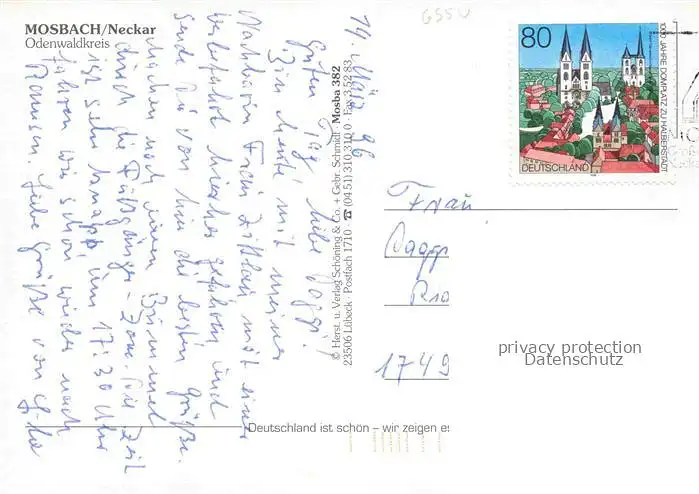 MOSBACH/Neckar
Odenwaldkreis
G55U
14. März 96
Guten Tag liebe Daggi!
Bin heute mit meiner
Nachbarin Frau mit einer
hierher gefahren und
sende Dir von hier die besten Grüße.
machen noch einen Bummel
durch die Fußgänger-Zone. Die Zeit
ist sehr knapp um 17:30 Uhr
fahren wir schon wieder nach
Liebe Grüße von
© Herst. u. Verlag Schöning & Co. + Gebr. Schmidt Mosba 382
23506 Lübeck · Postfach 1710 · ☎ (04 51) 310 310
80
1000 JAHRE DOMPLATZ ZU HALBERSTADT
DEUTSCHLAND
Frau
1749
privacy protection
Datenschutz
Deutschland ist schön – wir zeigen es